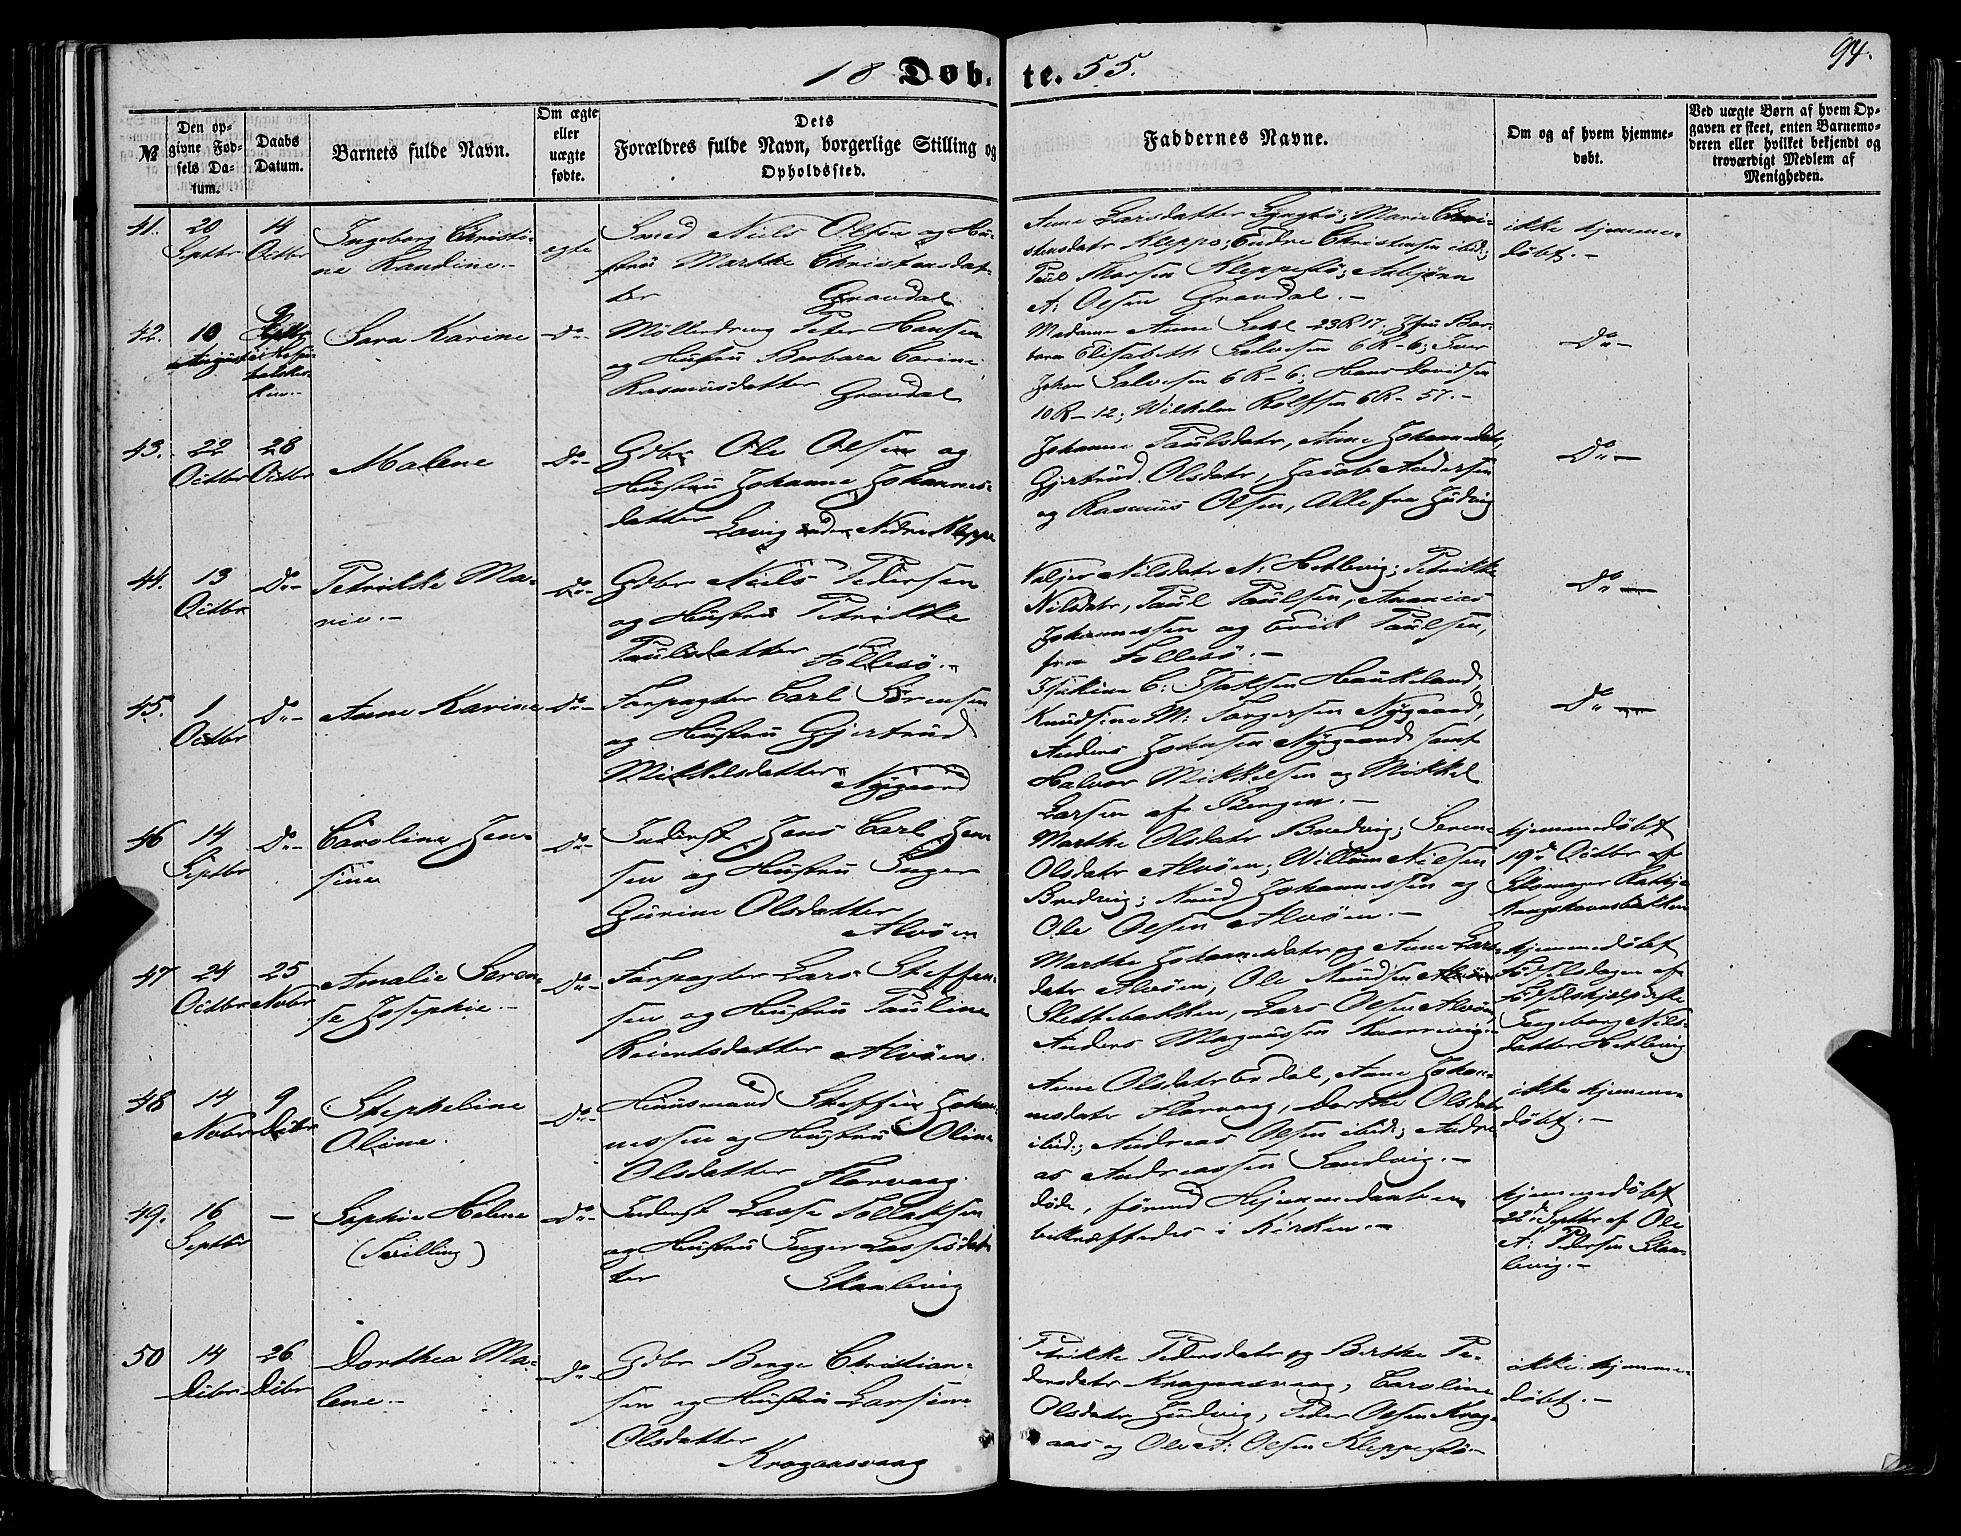 94.
18 Døb- te. 55.
№
Den opgivne Fødsels Datum.
Daabs Datum.
Barnets fulde Navn.
Om ægte eller uægte fødte.
Dets Forældres fulde Navn, borgerlige Stilling og Opholdssted.
Faddernes Navne.
Om og af hvem hjemmedøbt.
Ved uægte Børn af hvem Opgaven er skeet, enten Barnemoderen eller hvilket bekjendt og troværdigt Medlem af Menigheden.
41.
20
Septbr
14
Octbr
Ingeborg Christi-
ne Randine.-
egte
Smed Niels Olsen og Hu-
stru Marthe Christensdat-
ter Gravdal
Anne Larsdatter Lyngbø; Marie Chri-
stensdatr Kleppe; Endre Christensen ibid;
Paul Thorsen Kleppestø; Asbjørn
A: Olsen Gravdal.-
ikke hjemme-
døbt.-
42.
10
August
9
Septbr
Sara Karine
Do-
Møllerdreng Peter Hansen
og Hustru Barbara Carine
Rasmusdatter Gravdal
Madame Anne Dahl 23R 17; Jfru Bar-
bara Elisabeth Salvesen 6R-6; Iver
Johan Salvesen 6R-6; Hans Davidsen
10R-12; Wilhelm Rolfsen 6R-57.-
Do-
43.
22
Octbr
28
Octbr
Malene
Do-
Gdbr Ole Olsen og
Hustru Johanne Johannes-
datter Lovig under Nedre Kleppe
Johanne Paulsdatr, Anne Johannesdatr,
Gjertrud Olsdatr, Jacob Andersen
og Rasmus Olsen, Alle fra Judvig
Do-
44.
13
Octbr
Do-
Petrikke Ma-
rie.-
Do-
Gdbr Niels Pedersen
og Hustru Petrikke
Paulsdatter Follesø.-
Valjer Nilsdatr N: Hetlevig; Petrikke
Nilsdatr, Paul Paulsen, Ananias
Johannessen og Erik Paulsen,
fra Follesø.-
Do-
45.
1
Octbr
Do-
Anne Karine
Do-
Forpagter Carl Sørensen
og Hustru Gjertrud
Mikkelsdatter Nygaard
C: Isaksen Haukeland,
Knudsine M: Torgersen Nygaard,
Anders Johnsen Nygaard samt
Halvor Mikkelsen og Mikkel
Larsen af Bergen.-
Do-
46
14
Septbr
Do-
Caroline Jen-
sine
Do-
Inderst Jens Carl Jen-
sen og Hustru Inger
Jurine Olsdatter
Alvøen
Marthe Olsdatr Bredvig; Serene
Olsdatr Alvøen; Willum Nilsen
Bredvig; Knud Johannessen og
Ole Olsen Alvøen.-
hjemmedøbt
19de Octbr af
Skomager
47
24
Octbr
25
Novbr
Amalie Seren-
se Josephie.-
Do-
Forpagter Lars Steffen-
sen og Hustru Pauline
Reiertsdatter Alvøen.
Marthe Johannesdatr og Anne Lars-
datr Alvøen, Ole Knudsen
Slettebakken, Lars Olsen Alvøen
Anders Magnussen
hjemmedøbt
Fødselsdagen af
Fødselshjelperske
Ingeborg Nils-
datter Hetlevig
48
14
Novbr
9
Dcbr
Stepheline
Oline.
Do-
Huusmand Steffen Johan-
nessen og Hustru Oline
Olsdatter Florvaag.
Anne Olsdatr Erdal, Anne Johan-
nesdatr Florvaag, Dorthe Olsdatr
ibid:; Andreas Olsen ibid:; Andre-
as Andreassen Sandvig.-
ikke hjemme-
døbt.-
49.
16
Septbr
-
Sophie Helene
(Tvilling)
Do-
Inderst Lasse Tollaksen
og Hustru Inger Lassesdat-
ter Skaalevig
døde, førend Hjemmedaaben
bekræftedes i Kirken.-
hjemmedøbt
22de Septbr af Ole
A: Pedersen Skaa-
levig.-
50
14
Dcbr
26
Dcbr
Dorthea Ma-
lene.-
Do-
Gdbr Benge Christian-
sen og Hustru Larsine
Olsdatter
Kragaasvaag
Petrikke Pedersdatr og Berthe Pe-
dersdatr Kragaasvaag, Caroline
Olsdatr Judvig, Peder Olsen Krag-
aas og Ole A: Olsen Kleppestø.-
ikke hjemme-
døbt.-